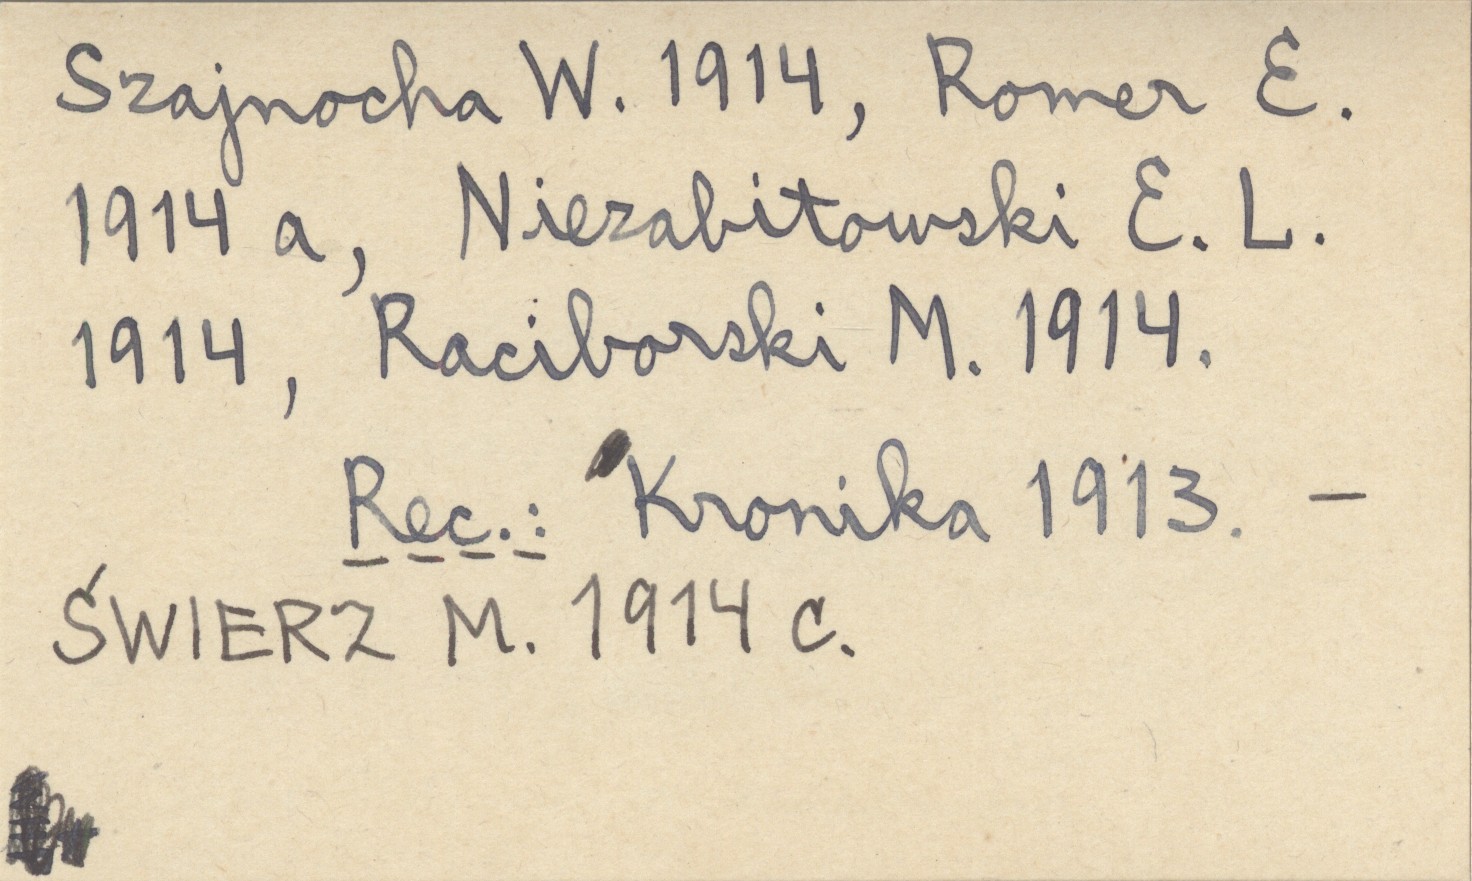 Szajnocha W. 1914, Romer E.
1914 a, Niezabitowski E. L.
1914, Raciborski M. 1914.
Rec.: Kronika 1913. —
ŚWIERZ M. 1914 c.